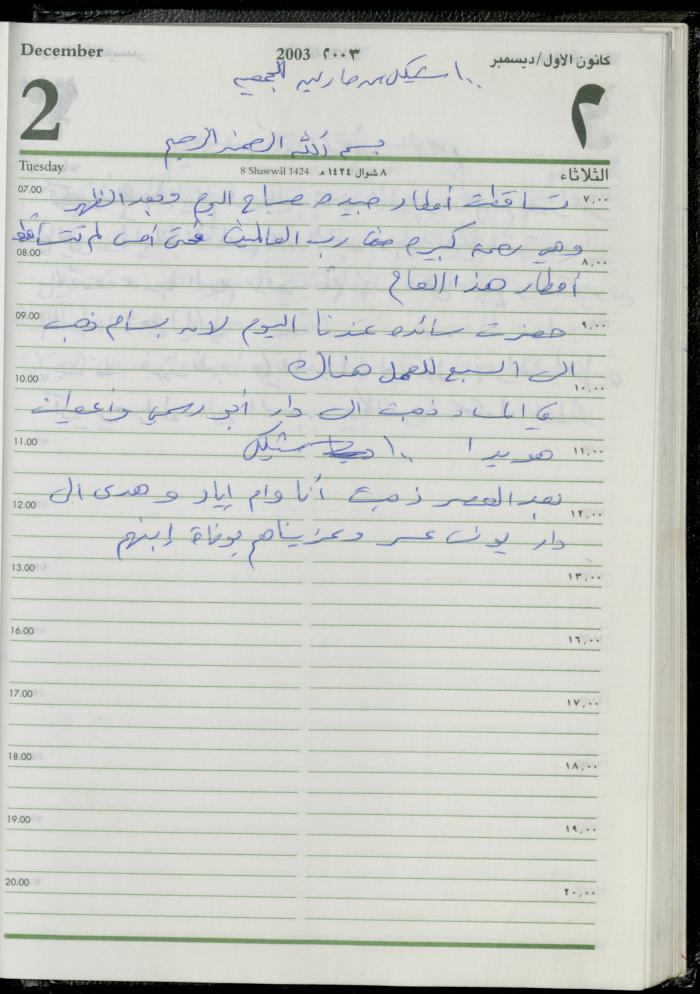 December
2003 ٢٠٠٣
كانون الاول/ديسمبر
2
٢
١٠٠ شيكل من مارية للجمعية
بسم الله الرحمن الرحيم
Tuesday
8 Shawwāl 1424 ٨ شوال ١٤٢٤ هـ
الثلاثاء
07.00 تساقطت أمطار جيده صباح اليوم وبعد الظهر ٧,٠٠
وهي رحمة كبيره من رب العالمين فحتى أمس لم تتساقط
08.00 ٨,٠٠
أمطار هذا العام
09.00 حضرت سائده عندنا اليوم لان بسام ذهب ٩,٠٠
الى السبع للعمل هناك
10.00 ١٠,٠٠
في المساء ذهبت الى دار أبو رسمي وأعطيت
11.00 هويدا ١٠٠ شيكل ١١,٠٠
بعد العصر ذهبت أنا وام اياد وهدى الى
12.00 ١٢,٠٠
دار يونس وعزيناهم بوفاة إبنهم
13.00 ١٣,٠٠
16.00 ١٦,٠٠
17.00 ١٧,٠٠
18.00 ١٨,٠٠
19.00 ١٩,٠٠
20.00 ٢٠,٠٠